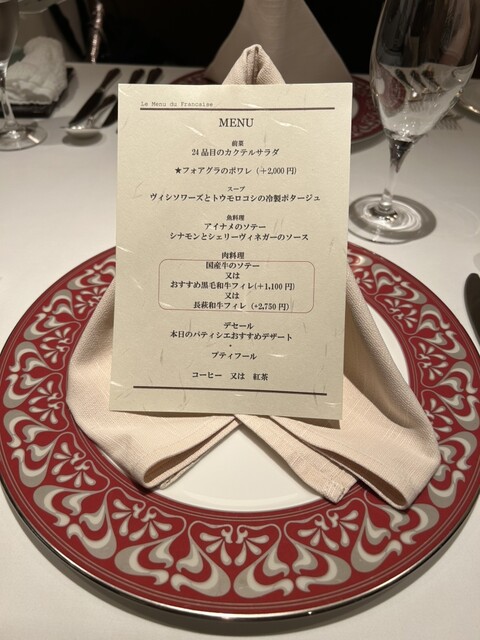 Le Menu du Francaise
MENU
前菜
24品目のカクテルサラダ
★フォアグラのポワレ（＋2,000円）
スープ
ヴィシソワーズとトウモロコシの冷製ポタージュ
魚料理
アイナメのソテー
シナモンとシェリーヴィネガーのソース
肉料理
国産牛のソテー
又は
おすすめ黒毛和牛フィレ(＋1,100円)
又は
長萩和牛フィレ（+2,750円）
デセール
本日のパティシエおすすめデザート
・
プティフール
コーヒー　又は　紅茶